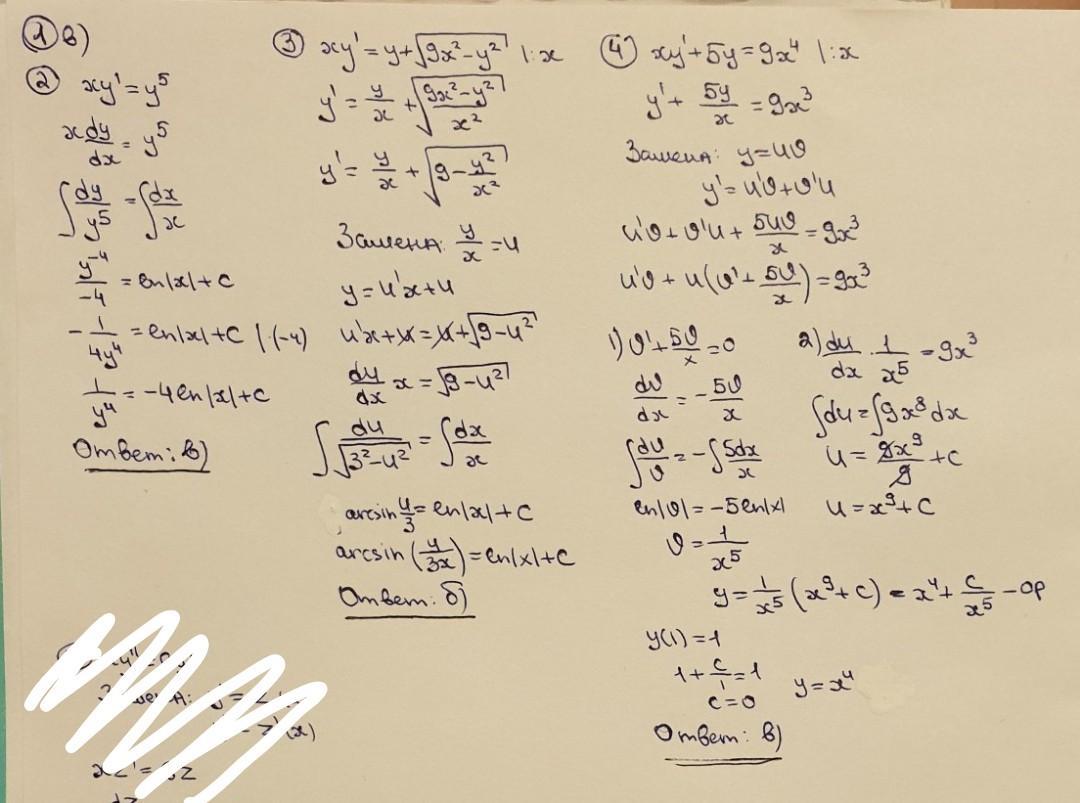 ① в)
② xy' = y⁵
x dy/dx = y⁵
∫ dy/y⁵ = ∫ dx/x
y⁻⁴/-4 = ln|x| + C
- 1/4y⁴ = ln|x| + C |·(-4)
1/y⁴ = -4 ln|x| + C
Ответ: в)
③ xy' = y + √(9x² - y²) |:x
y' = y/x + √((9x² - y²)/x²)
y' = y/x + √(9 - y²/x²)
Замена: y/x = u
y = u'x + u
u'x + u = u + √(9 - u²)
du/dx x = √(9 - u²)
∫ du/√(3² - u²) = ∫ dx/x
arcsin u/3 = ln|x| + C
arcsin (y/3x) = ln|x| + C
Ответ: б)
④ xy' + 5y = 9x⁴ |:x
y' + 5y/x = 9x³
Замена: y = uv
y' = u'v + v'u
u'v + v'u + 5uv/x = 9x³
u'v + u(v' + 5v/x) = 9x³
1) v' + 5v/x = 0
dv/dx = - 5v/x
∫ dv/v = -∫ 5dx/x
ln|v| = -5 ln|x|
v = 1/x⁵
2) du/dx · 1/x⁵ = 9x³
∫ du = ∫ 9x⁸ dx
u = 9x⁹/9 + C
u = x⁹ + C
y = 1/x⁵ (x⁹ + C) = x⁴ + C/x⁵ - ор
y(1) = 1
1 + C/1 = 1
C = 0
y = x⁴
Ответ: в)